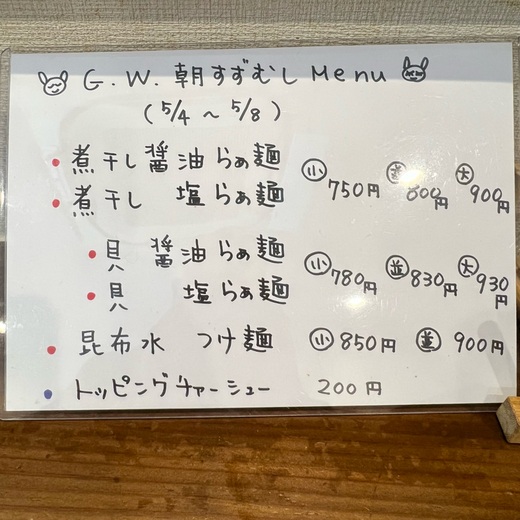 G.W. 朝すずむし Menu
(5/4 ~ 5/8)
煮干し醤油らぁ麺
煮干し 塩らぁ麺
小 750円 並 800円 大 900円
貝 醤油らぁ麺
貝 塩らぁ麺
小 780円 並 830円 大 930円
昆布水 つけ麺 小 850円 並 900円
トッピングチャーシュー 200円